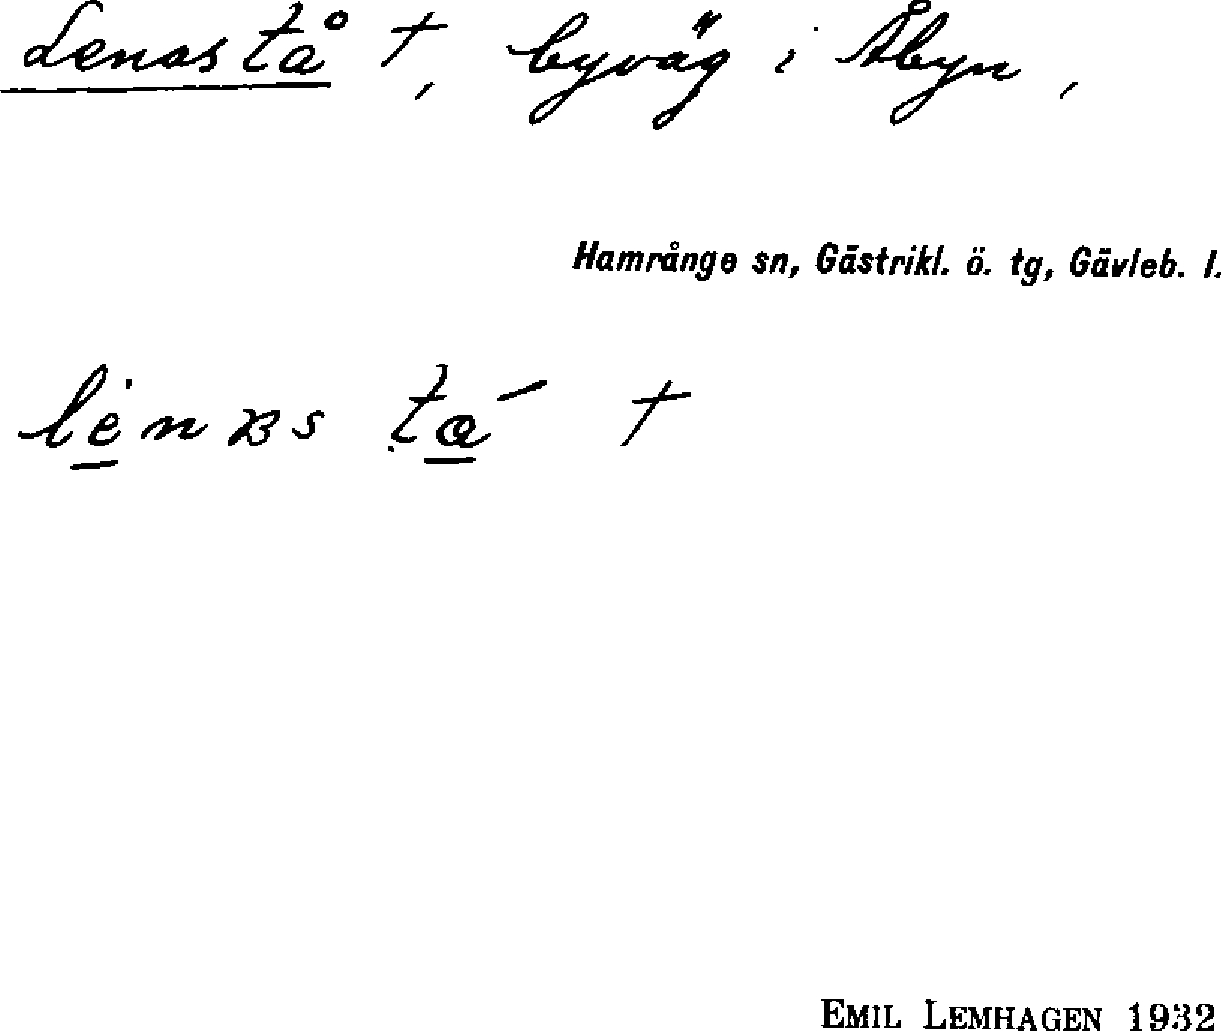 Lenas tå †, byväg i Åbyn,
Hamrånge sn, Gästrikl. ö. tg, Gävleb. l.
†
EMIL LEMHAGEN 1932